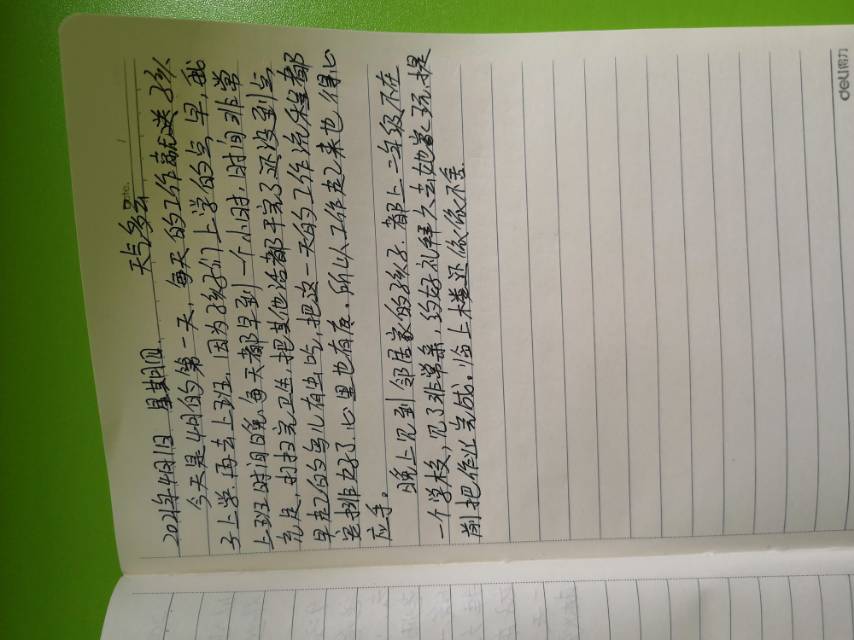 2021年4月1日 星期四 天气多云
今天是4月的第一天,每天的工作就送孩
子上学.再去上班.因为孩子们上学的点早,我
上班时间晚,每天都早到一个小时,时间非常
充足,打扫完卫生,把其他活都干完了还没到点
早起的鸟儿有虫吃,把这一天的工作流程都
安排好了.心里也有底.所以工作起来也得心
应手。
晚上见到邻居家的孩子.都上二年级不在
一个学校,见了非常亲,约好礼拜六去她家玩,提
前把作业完成。临上楼还依依不舍.
deli得力